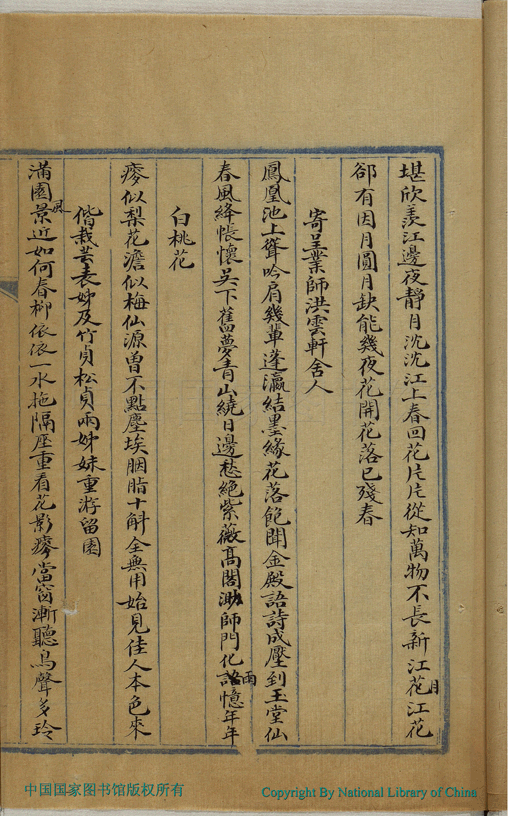 堪欣羨江邊夜靜月沈沈江上春回花片片從知萬物不長新江花月江花
郤有因月圓月缺能幾夜花開花落已殘春
寄呈業師洪雲軒舍人
鳳凰池上聳吟肩幾輩蓬瀛結墨緣花落飽聞金殿語詩成壓到玉堂仙
春風絳帳懷吳下舊夢青山繞日邊愁絕紫薇高閣泐師門化雨憶年年
白桃花
瘦似梨花澹似梅仙源曾不點塵埃胭脂十斛全無用始見佳人本色來
偕裁芸表姊及竹貞松貞兩姊妹重游留園
滿園風景近如何春柳依依一水拖隔座重看花影瘦當窗漸聽鳥聲多玲
中国国家图书馆版权所有
Copyright By National Library of China